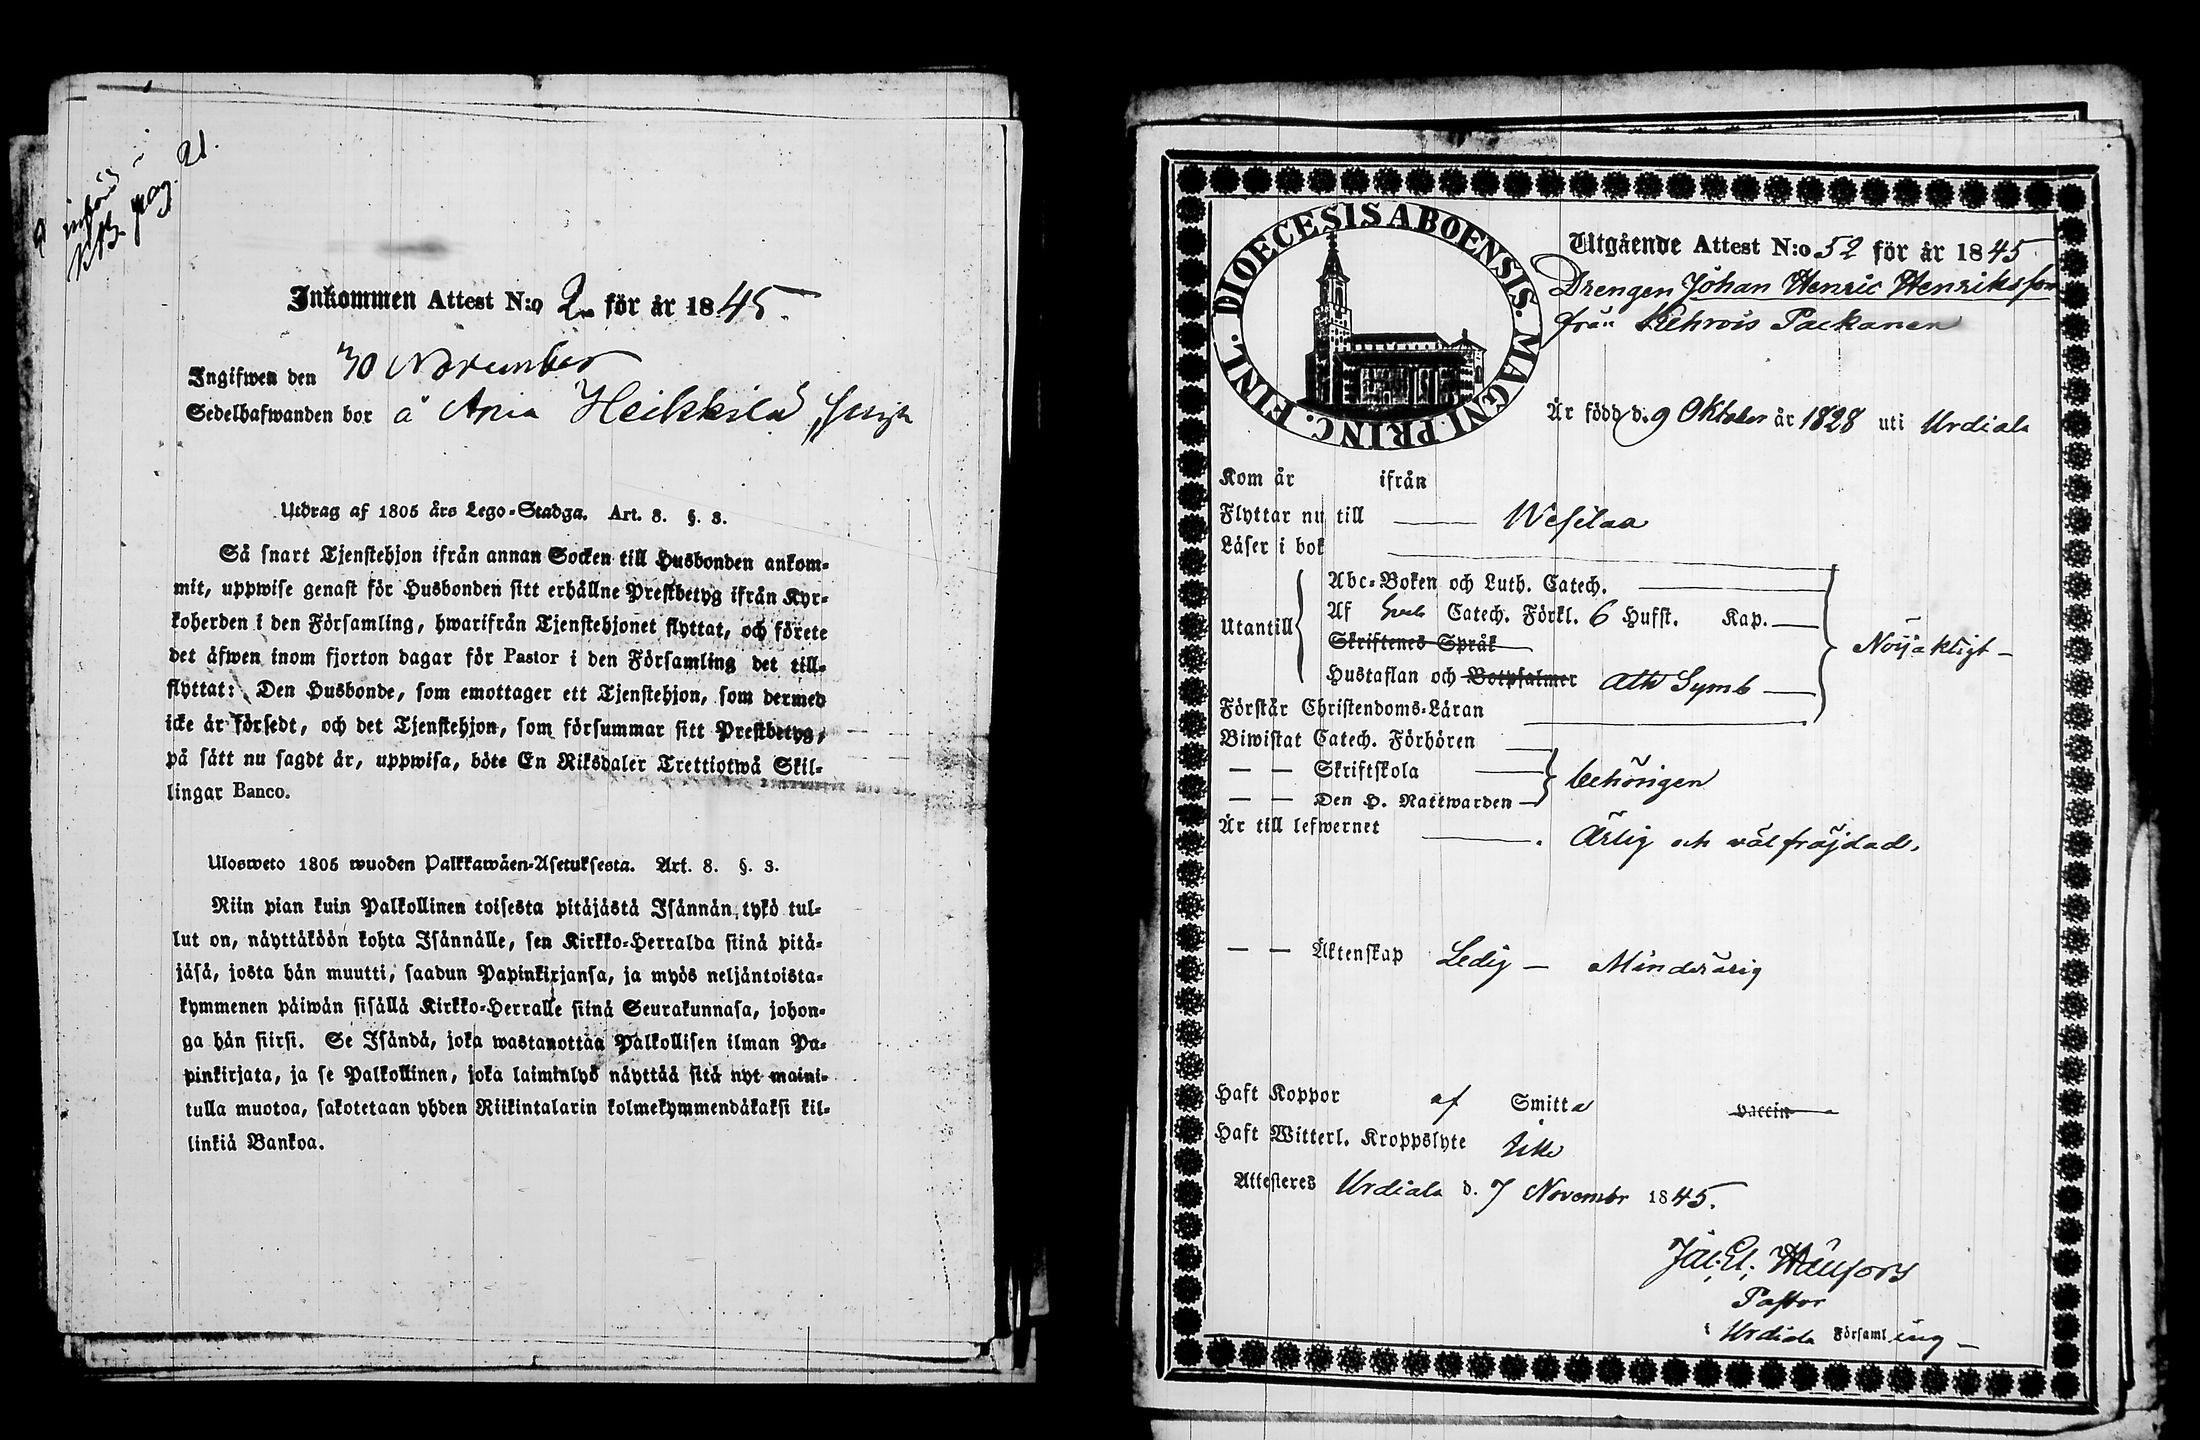 införd
KB pag. 21.
Inkommen Attest N:o 2 för år 1845.
Ingifwen den 30 November
Sedelhafwanden bor å Ania Heikkilä
Utdrag af 1805 års Lego-Stadga. Art. 8. §. 3.
Så snart Tjenstehjon ifrån annan Socken till Husbonden ankom-
mit, uppwise genast för Husbonden sitt erhållne Prestbetyg ifrån Kyr-
koherden i den Församling, hwarifrån Tjenstehjonet flyttat, och förete
det äfwen inom fjorton dagar för Pastor i den Församling det till-
flyttat: Den Husbonde, som emottager ett Tjenstehjon, som dermed
icke är försedt, och det Tjenstehjon, som försummar sitt Prestbetyg,
på sätt nu sagdt är, uppwisa, böte En Riksdaler Trettiotwå Skil-
lingar Banco.
Ulosweto 1805 wuoden Palkkawäen-Asetuksesta. Art. 8. §. 3.
Niin pian kuin Palkollinen toisesta pitäjästä Isännän tykö tul-
lut on, näyttäköön kohta Isännälle, sen Kirkko-Herralda siinä pitä-
jäsä, josta hän muutti, saadun Papinkirjansa, ja myös neljäntoista-
kymmenen päiwän sisällä Kirkko-Herralle siinä Seurakunnasa, johon-
ga hän siirsi. Se Isändä, joka wastanottaa Palkollisen ilman Pa-
pinkirjata, ja se Palkollinen, joka laiminlyö näyttää sitä nyt maini-
tulla muotoa, sakotetaan yhden Riikintalarin kolmekymmendäkaksi kil-
linkiä Bankoa.
DIOECESIS ABOENSIS. MAGNI PRINC. FINL.
Utgående Attest N:o 52 för år 1845
Drengen Johan Henric Henriksson
från Kehrois Packanen
Är född d. 9 Oktober år 1828 uti Urdiala
Kom år ifrån
Flyttar nu till Wesilaa
Läser i bok
Utantill
Abc-Boken och Luth. Catech.
Af Sveb Catech. Förkl. 6 Hufst. Kap.
Skriftenes Språk
Hustaflan och Botpsalmer Ath Symb
Nöjaktigt
Förstår Christendoms-Läran
Biwistat Catech. Förhören
— — Skriftskola
— — Den H. Nattwarden
behörigen
Är till lefwernet Ärlig och välfräjdad.
— — Äktenskap Ledig — Minderårig
Haft Koppor af Smitta vaccin
Haft Witterl. Kroppslyte icke
Attesteres Urdiala d. 7 Novembr 1845.
Pastor
i Urdiala Församling